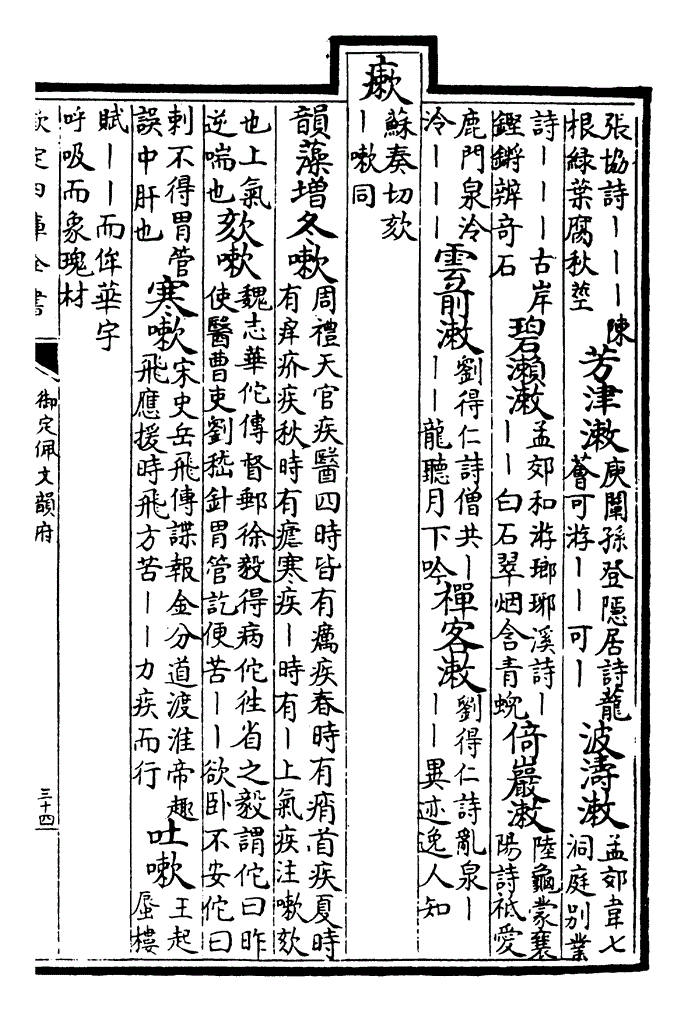 張協詩｜｜｜陳根緑葉腐秋莖 芳津潄 庾闡孫登隱居詩龍薈可游｜｜可｜ 波濤潄 孟郊韋七洞庭別業
詩｜｜｜古岸鏗鏘辨奇石 碧瀨潄 孟郊和游瑯琊溪詩｜｜｜白石翠烟含青蜺 倚巖潄 陸龜蒙襄陽詩祗愛
鹿門泉泠泠｜｜｜ 雲前潄 劉得仁詩僧共｜｜｜龍聽月下吟 禪客潄 劉得仁詩亂泉｜｜｜異迹逸人知
瘶 蘇奏切欬｜嗽同
韻藻增 冬嗽 周禮天官疾醫四時皆有癘疾春時有痟首疾夏時有痒疥疾秋時有瘧寒疾｜時有｜上氣疾注嗽欬
也上氣逆喘也 欬嗽 魏志華佗傳督郵徐毅得病佗徃省之毅謂佗曰昨使醫曹吏劉嵇針胃管訖便苦｜｜欲卧不安佗曰
刺不得胃管誤中肝也 寒嗽 宋史岳飛傳諜報金分道渡淮帝趣飛應援時飛方苦｜｜力疾而行 吐嗽 王起蜃樓
賦｜｜而侔華宇呼吸而象瑰材
欽定四庫全書
御定佩文韻府
三十四